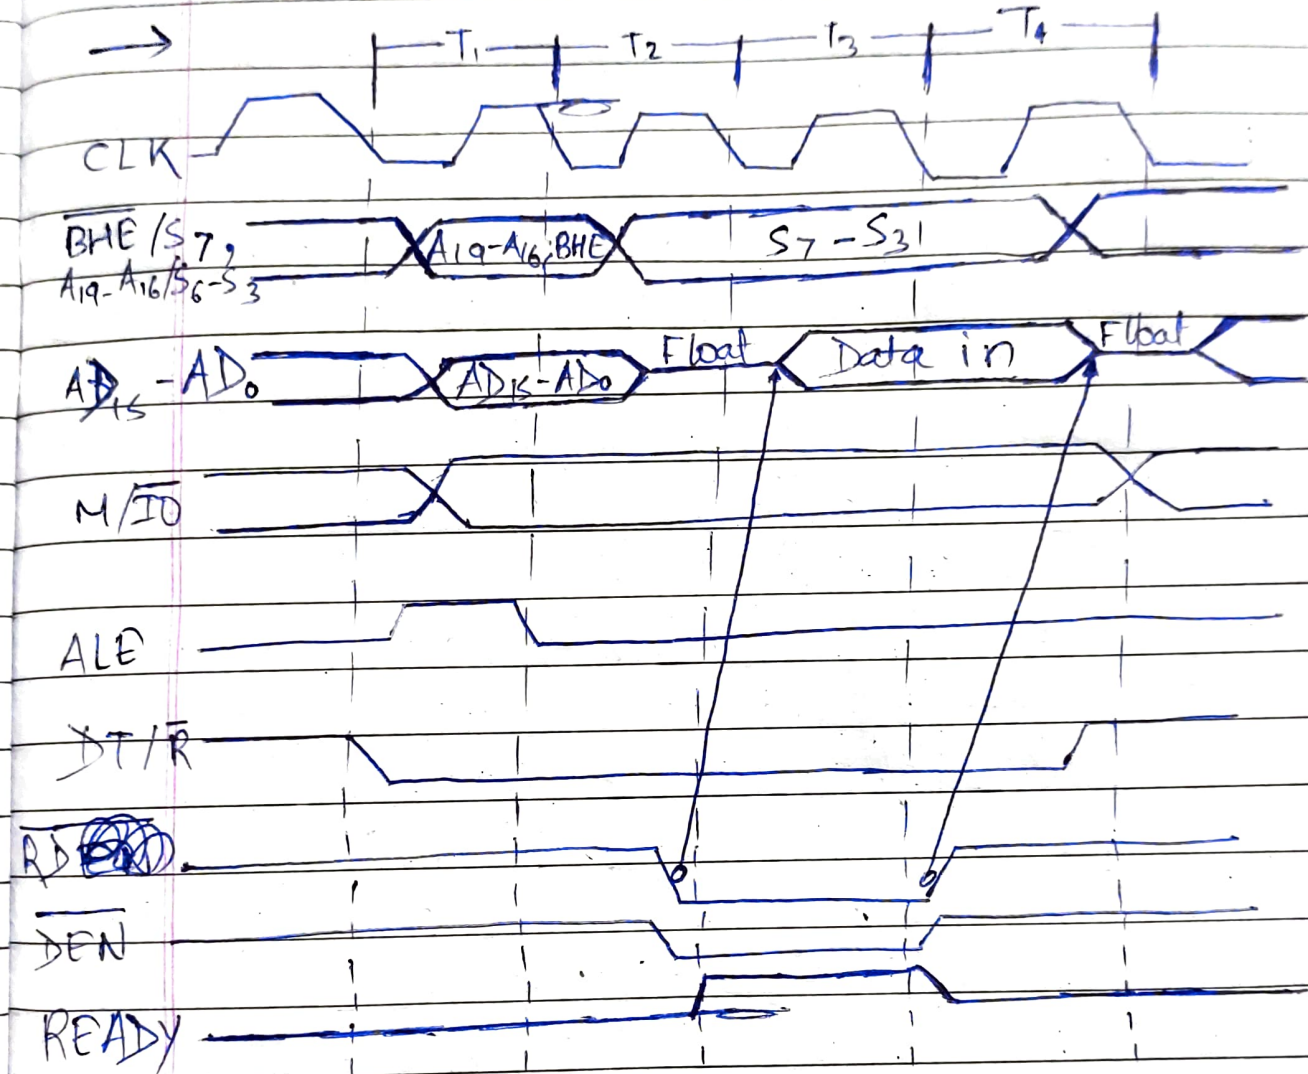 T₁ T₂ T₃ T₄
CLK
B̅H̅E̅/S₇, A₁₉-A₁₆, BHE S₇-S₃
A₁₉-A₁₆/S₆-S₃
AD₁₅-AD₀ AD₁₅-AD₀ Float Data in Float
M/I̅O̅
ALE
DT/R̅
R̅D̅
D̅E̅N̅
READY